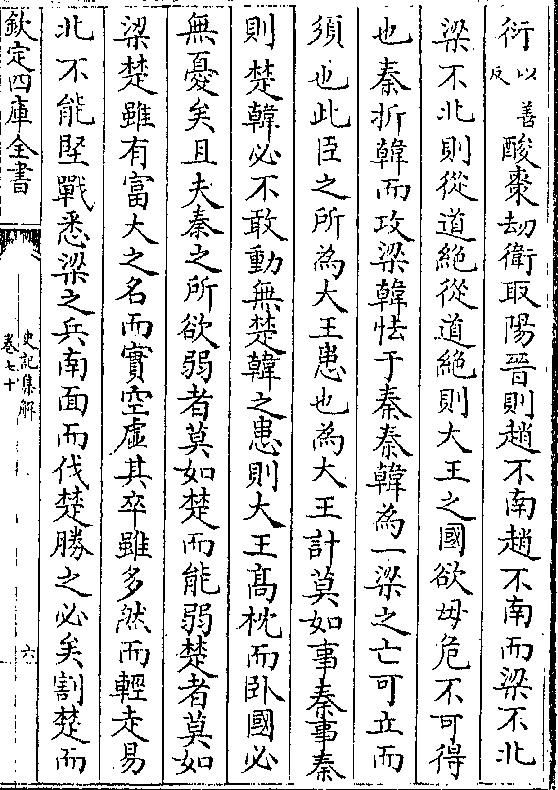 衍以善反酸棗刼衛取陽晉則趙不南趙不南而梁不北
梁不北則從道絶從道絶則大王之國欲毋危不可得
也秦折韓而攻梁韓怯于秦秦韓為一梁之亡可立而
須也此臣之所為大王患也為大王計莫如事秦事秦
則楚韓必不敢動無楚韓之患則大王髙枕而卧國必
無憂矣且夫秦之所欲弱者莫如楚而能弱楚者莫如
梁楚雖有富大之名而實空虛其卒雖多然而輕走易
北不能堅戰悉梁之兵南面而伐楚勝之必矣割楚而
欽定四庫全書
史記集解
卷七十
六